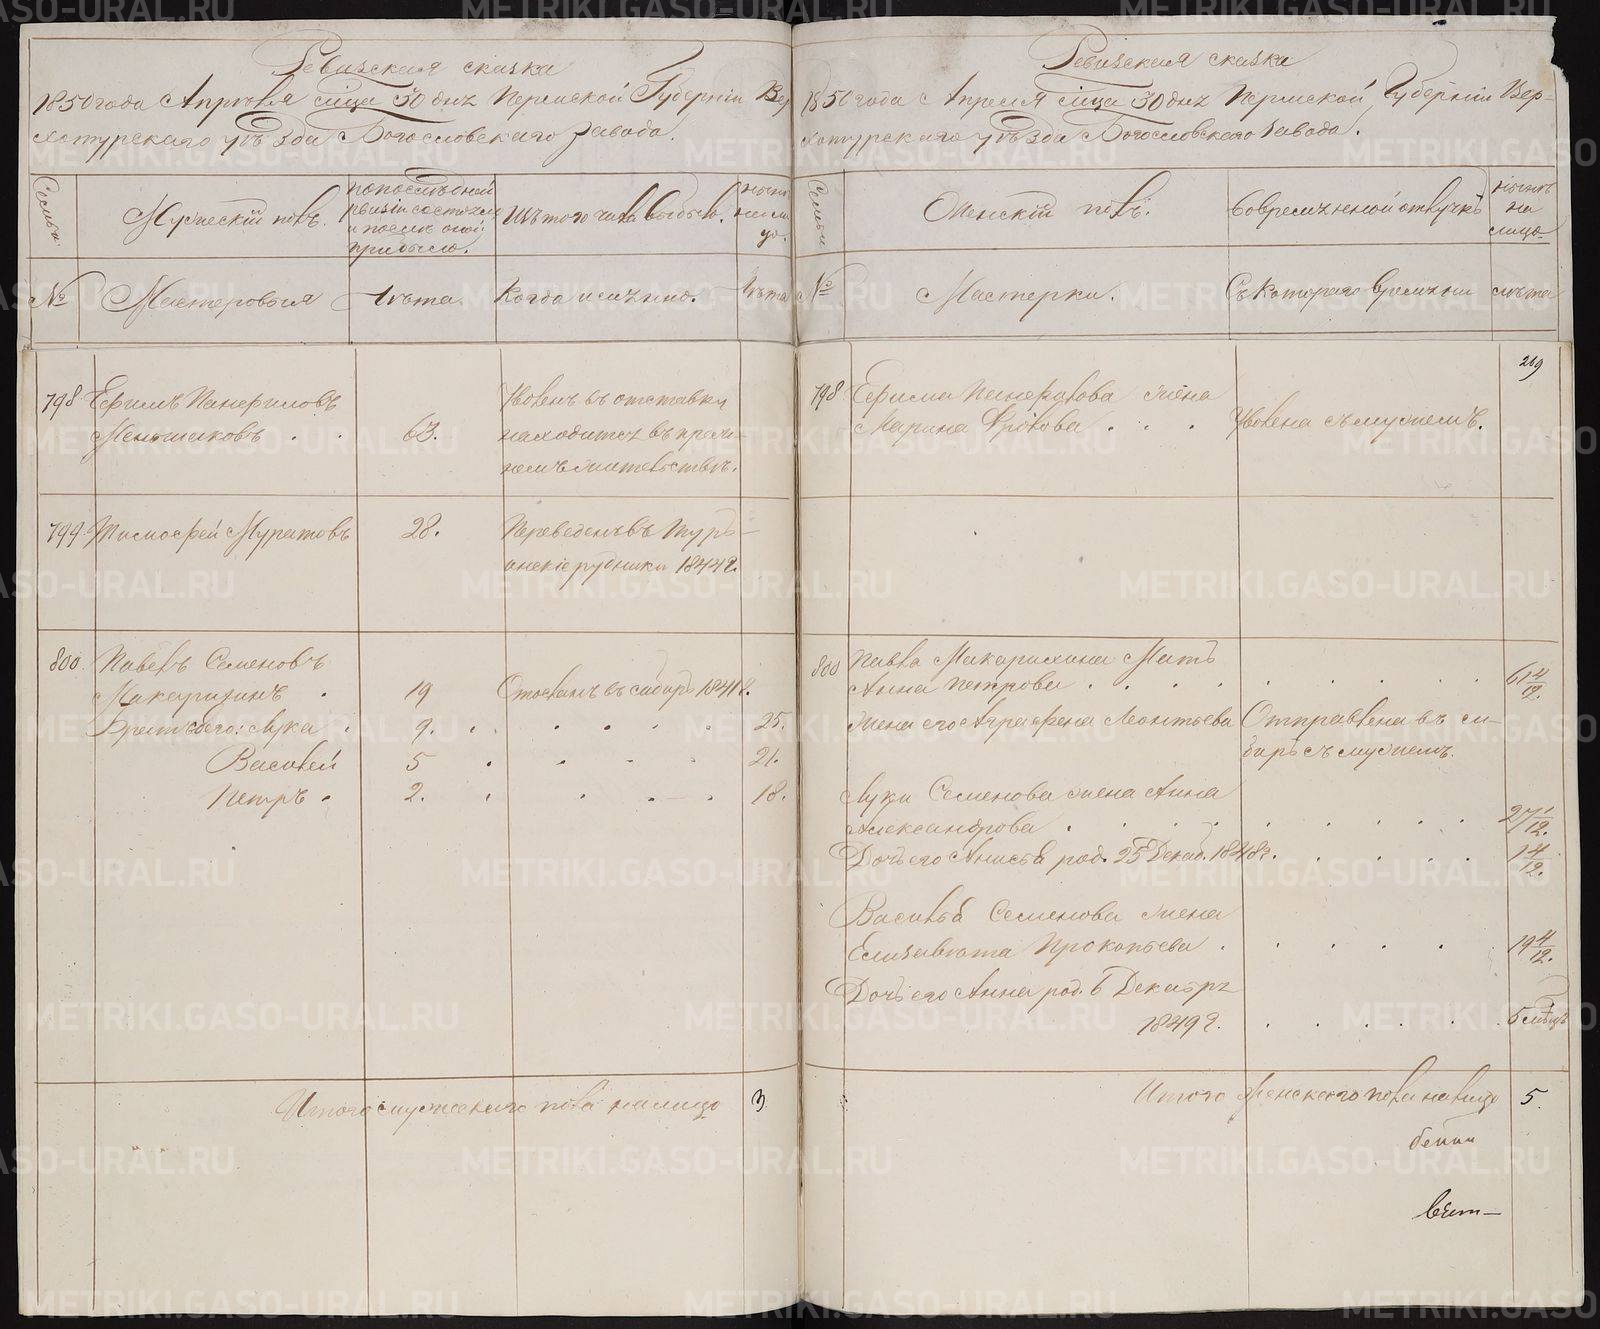 Ревизская сказка
1850 года Апреля м̃ца 30 дня Пермской Губерніи Вер
хотурскаго уѣзда Богословскаго завода.
Семьи
Мужескій полъ.
по последней
ревизіи состояло
и после оной
прибыло.
Изъ того числа выбыло.
ныне
на ли
цо.
№
Мастеровыя
Лѣта.
Когда именно.
Лѣта
798
Ефимъ Панфиловъ
Меньшиковъ . .
63.
Уволенъ въ отставку
находится въ преж-
немъ жительстве.
799
Тимофей Муратовъ
28.
Переведенъ въ Турь-
инскіе рудники 1844 г.
800
Павелъ Семеновъ
Макаришинъ .
19
Отосланъ въ сибирь 1841 г.
Братья его: Лука .
9.
25.
Василей
5
21.
Петръ .
2.
18.
Итого мужескаго пола на лицо
3
Ревизская сказка
1850 года Апреля м̃ца 30 дня Пермской Губерніи Вер-
хотурскаго уѣзда Богословскаго завода.
Семьи
Женскій полъ.
во временной отлучкѣ
ныне
на
лицо
№
Мастерки.
Съ котораго времени
лѣта
269
798
Ефима Панфилова жена
Марина Фролова . . .
Уволена съ мужемъ.
800
Павла Макаришина Мать
Анна Петрова . . .
61 4/12.
Жена его Аграфена Леонтьева
Отправлена въ си-
бирь съ мужемъ.
Луки Семенова жена Анна
Александрова .
27 1/12.
Дочь его Анисья род. 25 Декаб. 1848 г.
1 4/12.
Василья Семенова жена
Елизавета Прокопьева .
19 4/12.
Дочь его Анна род. 6 Декабря
1849 г.
5 месяцъ
Итого Женскаго пола на лицо
5.
METRIKI.GASO-URAL.RU